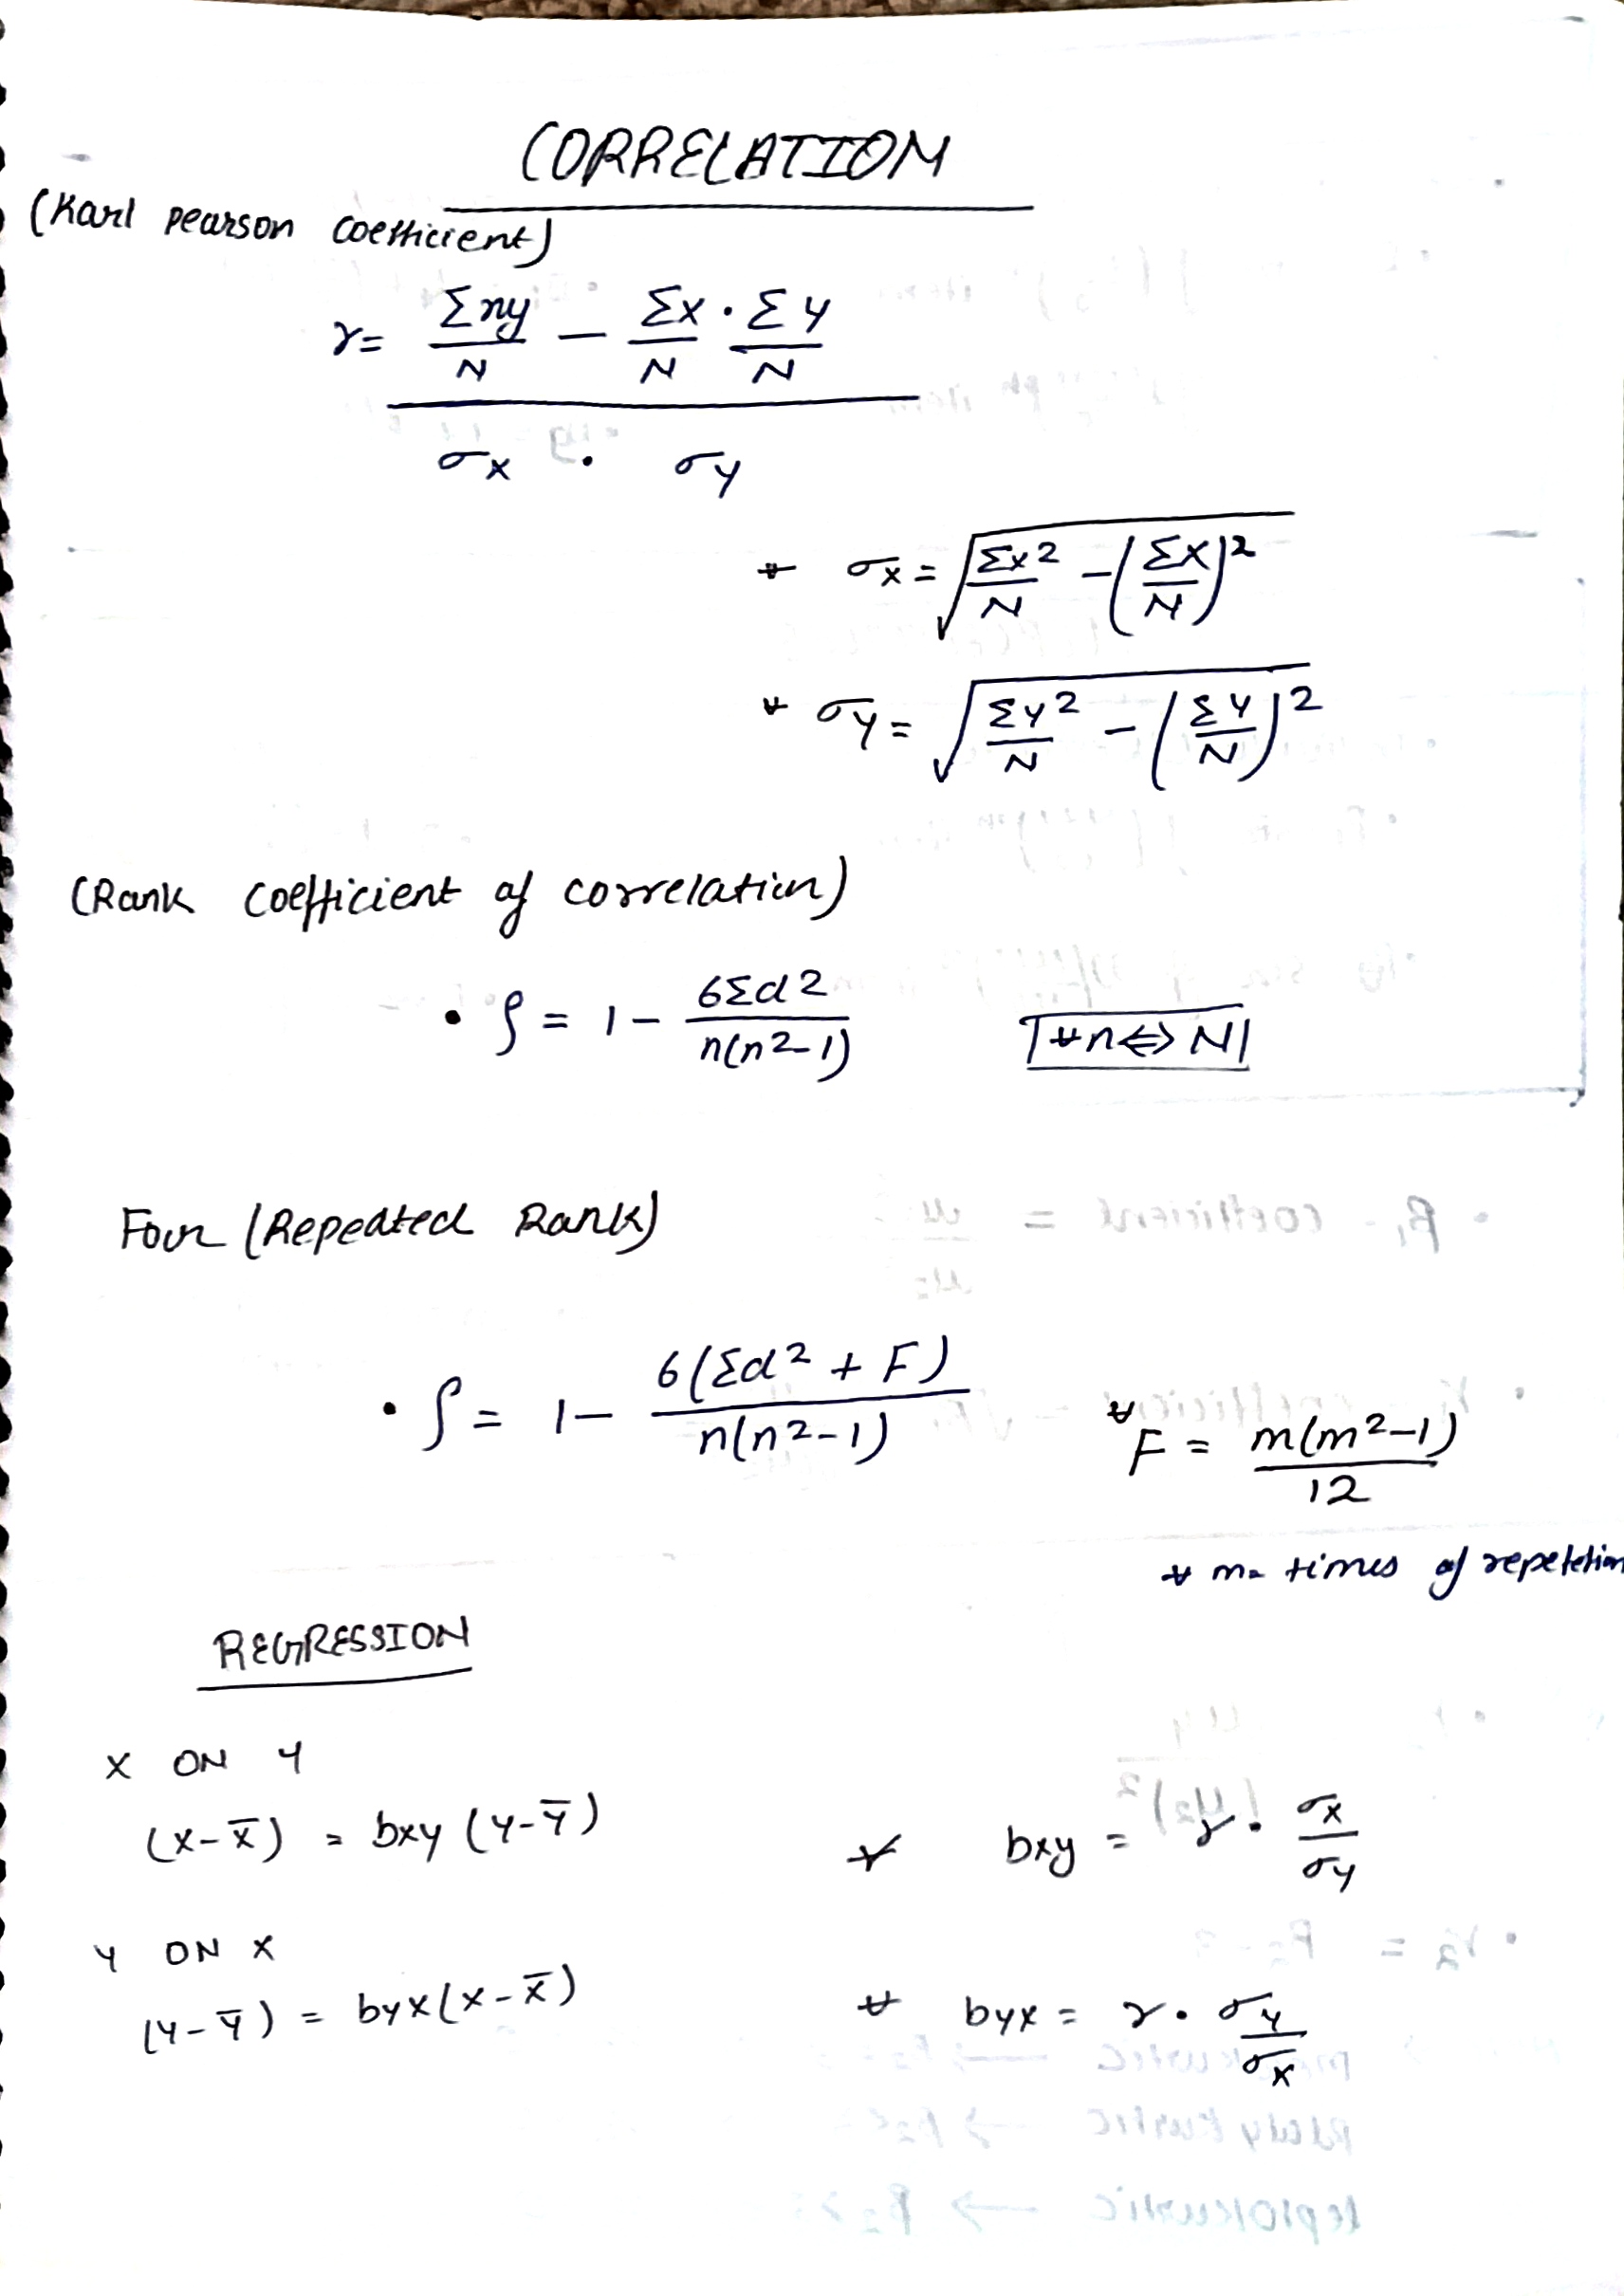 CORRELATION
(Karl pearson coefficient)
r = (Σxy/N − Σx/N · Σy/N) / (σx · σy)
* σx = √(Σx²/N − (Σx/N)²)
* σy = √(Σy²/N − (Σy/N)²)
(Rank coefficient of correlation)
• ρ = 1 − 6Σd²/n(n²−1)    * n ⇔ N
Four (Repeated Rank)
• ρ = 1 − 6(Σd² + F)/n(n²−1)    * F = m(m²−1)/12
* m = times of repetetion
REGRESSION
X ON Y
(x−x̄) = bxy (y−ȳ)    * bxy = r · σx/σy
Y ON X
(y−ȳ) = byx (x−x̄)    * byx = r · σy/σx